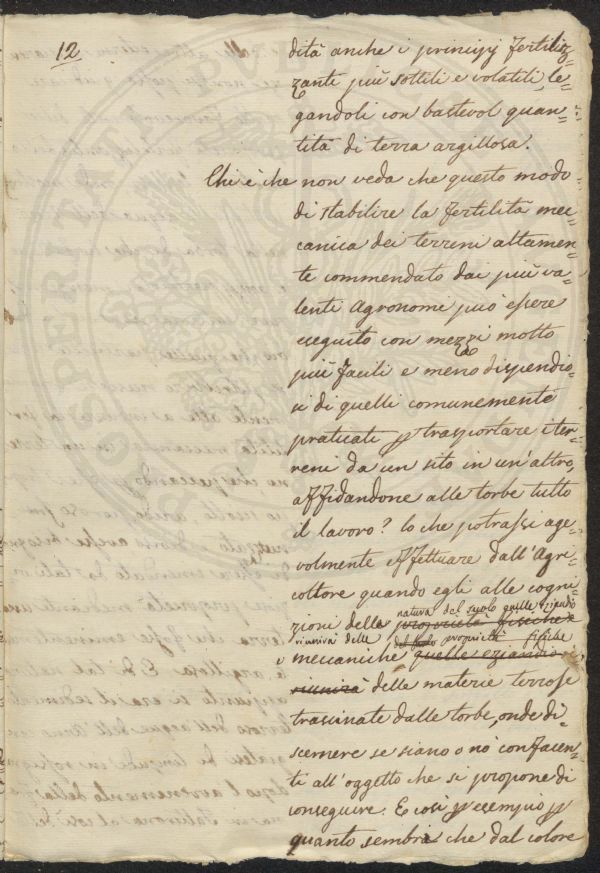 12
dità anche i principj fertiliz=
zanti più sottili e volatili, le=
gandoli con bastevol quan=
tità di terra argillosa.
Chi è che non veda che questo modo
di stabilire la fertilità mec=
canica dei terreni altamen=
te commendato dai più va=
lenti Agronomi può essere
eseguito con mezzi molto
più facili e meno dispendio=
si di quelli comunemente
praticati p trasportare i ter=
reni da un sito in un'altro,
affidandone alle torbe tutto
il lavoro? lo che potrassi age=
volmente effettuare dall'Agri=
coltore quando egli alle cogni=
natura del suolo quelle eziandio
zioni della proprietà fisiche e
riunirà delle proprietà fisiche
e meccaniche quelle eziandio
riunirà delle materie terrose
trascinate dalle torbe, onde di=
scernere se siano o nò confacen=
ti all'oggetto che si propone di
conseguire. E così p esempio p
quanto sembra che dal colore